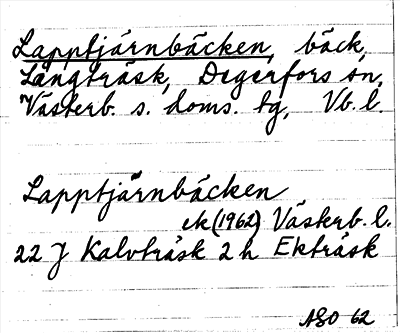 Lapptjärnbäcken, bäck,
Långträsk, Degerfors sn.
Västerb. s. doms. tg, Vb. l.
Lapptjärnbäcken
ek (1962) Västerb. l.
22 J Kalvträsk 2 h Ekträsk
ASO 62